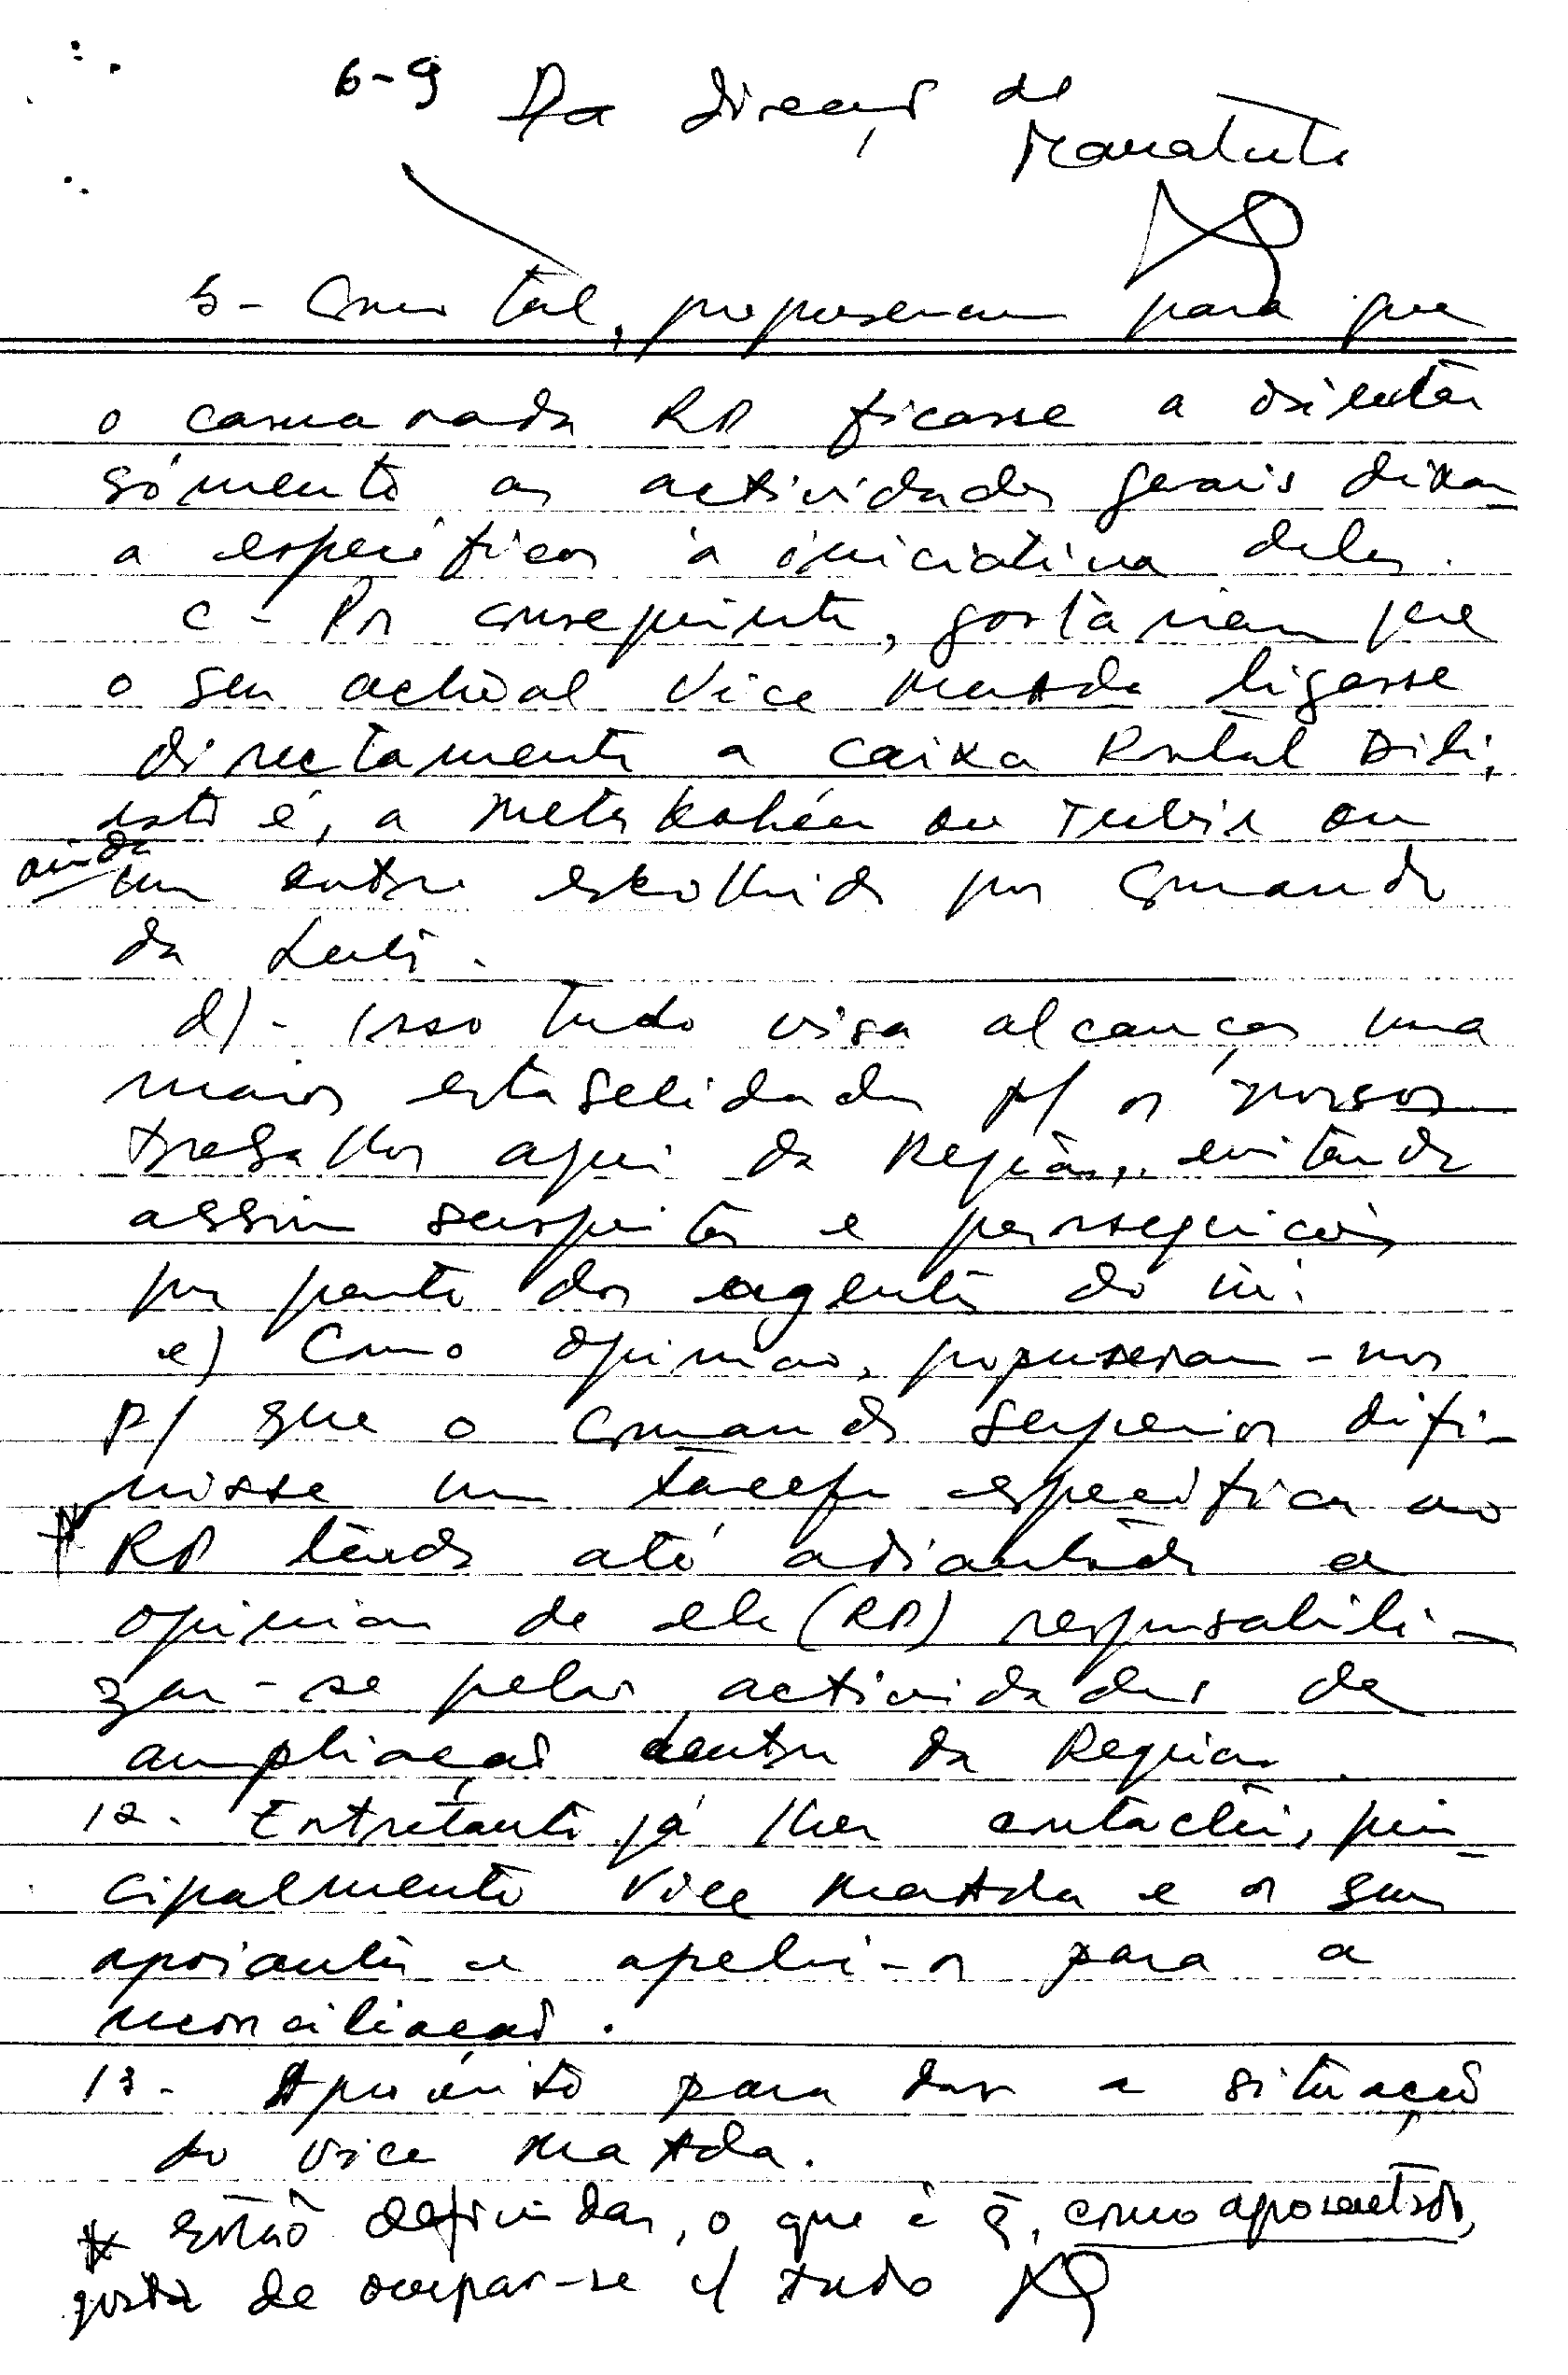 6-9 Da direcção de
Manatuto
b- Como tal, propuseram para que
o camarada RD ficasse a orientar
sómente as actividades gerais dixan
a especificas à iniciativa deles.
c - Por conseguinte, gostariam que
o seu actual Vice Mattda ligasse
directamente a caixa Postal Dili,
isto é, a Metak bohén ou Tubir ou
ainda
um outro escolhido por Comando
da Luta.
d)- Isso tudo visa alcançar uma
maior estabelidade p/ os nossos
trabalhos aqui da Região, evitando
assim suspeitas e perseguições
por parte dos agentes do ini.
e) Como opinião, propuseram-nos
p/ que o Comando Superior difi-
nisse um tarefa especifica ao
* RD tendo até adiantado a
opinião de ele (RD) responsabili-
zar-se pelas actividades de
ampliação dentro da Região.
12. Entretanto já lhes contactei, prin-
cipalmente Vice Mattda e os seus
apoiantes e apelei-os para a
reconciliação.
13 - Aproveito para dar a situação
do Vice Mattda.
* Estão definidas, o que é é, como aposentado,
gosta de ocupar-se c/ tudo